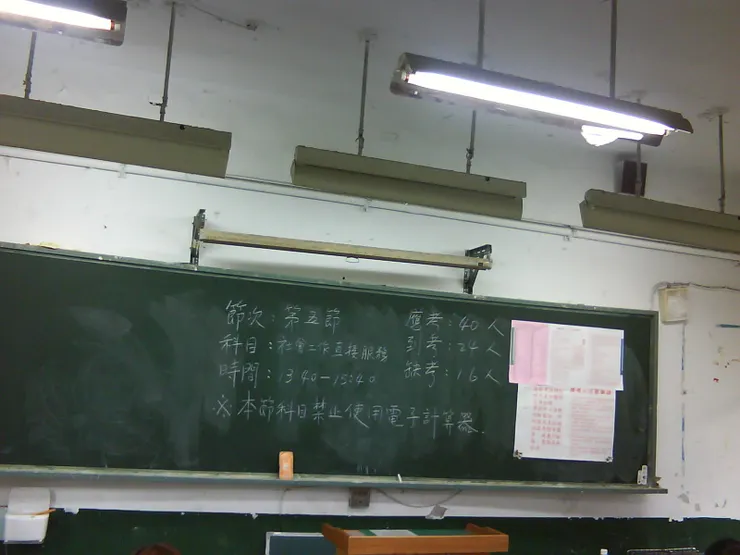 節次：第五節
科目：社會工作直接服務
時間：13:40-15:40
應考：40人
到考：24人
缺考：16人
※本節科目禁止使用電子計算器.